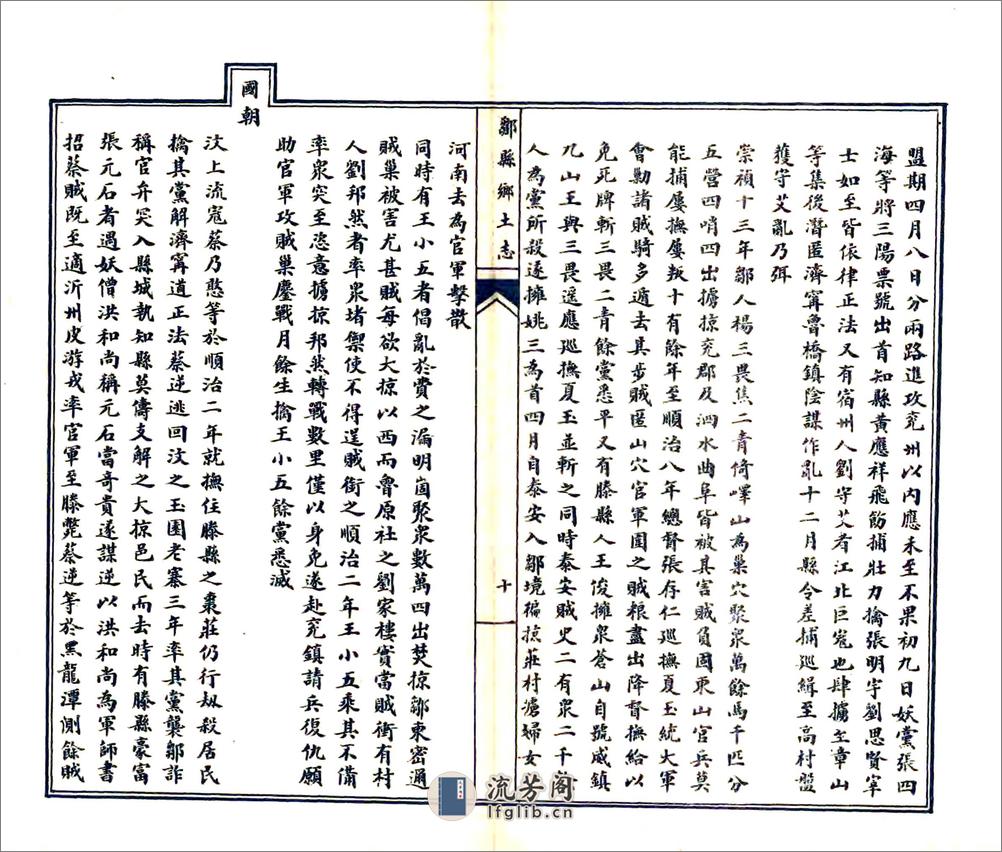 盟期四月八日分兩路進攻兗州以內應未至不果初九日妖黨張四
海等將三陽票號出首知縣黃應祥飛飭捕壯力擒張明宇劉思賢宰
士如至皆依律正法又有宿州人劉守艾者江北巨寇也肆擄至章山
等集後潛匿濟甯魯橋鎮陰謀作亂十二月縣令差捕巡緝至高村盤
獲守艾亂乃弭
崇禎十三年鄒人楊三畏焦二青倚嶧山為巢穴聚眾萬餘馬千匹分
五營四哨四出擄掠兗郡及泗水曲阜皆被其害賊負固東山官兵莫
能捕屢撫屢叛十有餘年至順治八年總督張存仁巡撫夏玉統大軍
會勦諸賊騎多遁去其步賊匿山穴官軍圍之賊粮盡出降督撫給以
免死牌斬三畏二青餘黨悉平又有滕縣人王俊擁眾蒼山自號威鎮
九山王與三畏遥應巡撫夏玉並斬之同時泰安賊史二有眾二千
人為黨所殺遂擁姚三為首四月自泰安入鄒境徧掠莊村擄婦女
鄒縣鄉土志
十
河南去為官軍擊散
同時有王小五者倡亂於費之漏明崮聚眾數萬四出焚掠鄒東密邇
賊巢被害尤甚賊每欲大掠以西而魯原社之劉家樓實當賊衝有村
人劉邦然者率眾堵禦使不得逞賊銜之順治二年王小五乘其不備
率眾突至恣意擄掠邦然轉戰數里僅以身免遂赴兗鎮請兵復仇願
助官軍攻賊巢鏖戰月餘生擒王小五餘黨悉滅
國朝
汶上流寇蔡乃憨等於順治二年就撫住滕縣之棗莊仍行刼殺居民
擒其黨解濟甯道正法蔡逆逃回汶之玉園老寨三年率其黨襲鄒詐
稱官弁突入縣城執知縣莫儔支解之大掠邑民而去時有滕縣豪富
張元石者遇妖僧洪和尚稱元石當奇貴遂謀逆以洪和尚為軍師書
招蔡賊既至適沂州皮游戎率官軍至滕斃蔡逆等於黑龍潭側餘賊
流芳阁
lfglib.cn